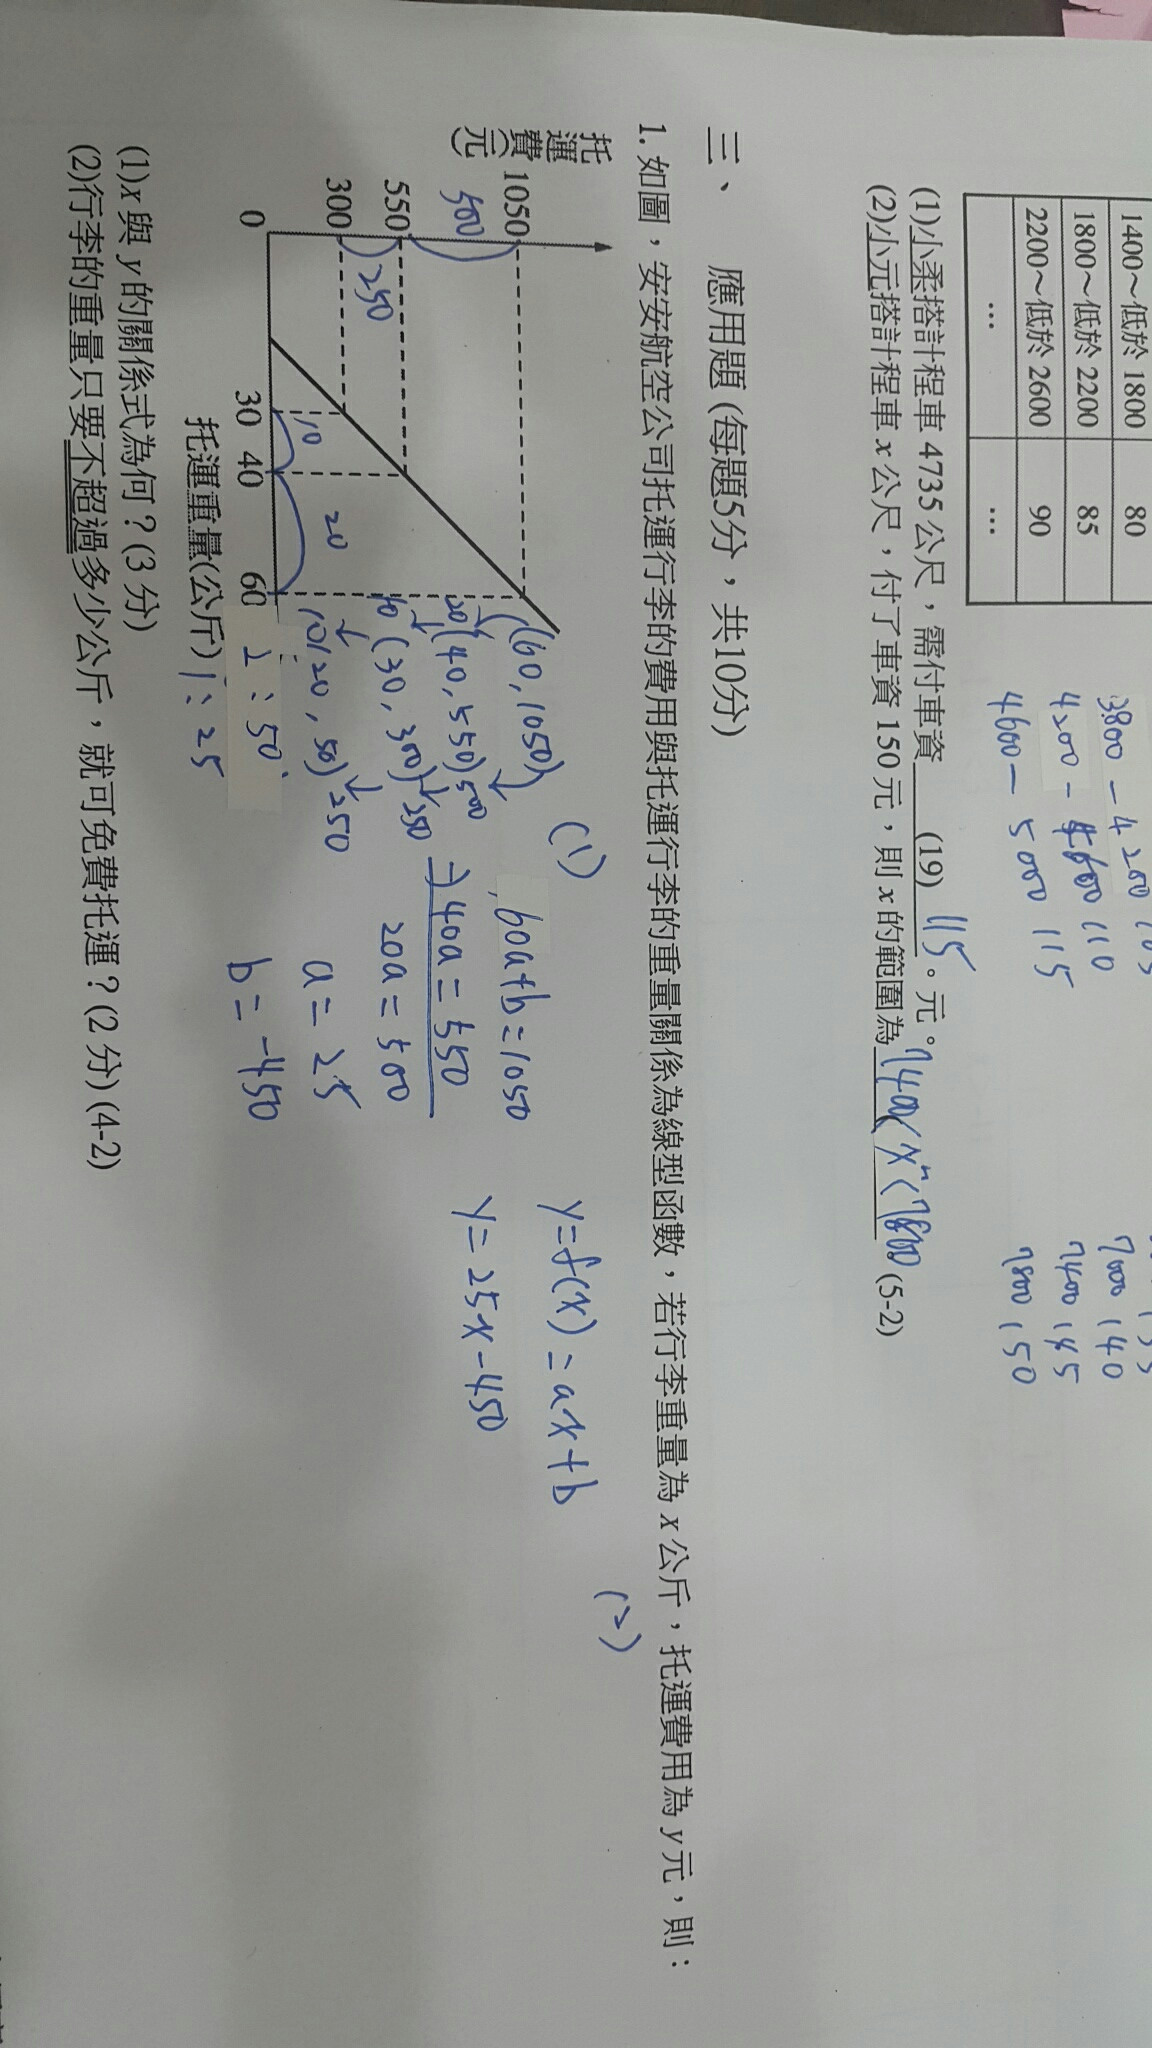 1400～低於 1800 80
1800～低於 2200 85
2200～低於 2600 90
… …
3800 - 4200 105
4200 - 4600 110
4600 - 5000 115
7000 140
7400 145
7800 150
(1)小柔搭計程車 4735 公尺，需付車資 (19) 115 。元。
(2)小元搭計程車 x 公尺，付了車資 150 元，則 x 的範圍為 7400<x<7800 。(5-2)
三、 應用題 (每題5分，共10分)
1. 如圖，安安航空公司托運行李的費用與托運行李的重量關係為線型函數，若行李重量為 x 公斤，托運費用為 y 元，則：
托運費(元)
1050
500
550
250
300
0
10
20
30 40 60
托運重量(公斤)
(60, 1050)
20 (40, 550) 500
10 (30, 300) 250
10 (20, 50) 250
2 : 50
1 : 25
(1)
60a+b=1050
-) 40a = 550
20a = 500
a = 25
b = -450
y=f(x)=ax+b
y=25x-450
(2)
(1)x 與 y 的關係式為何？(3 分)
(2)行李的重量只要不超過多少公斤，就可免費托運？(2 分) (4-2)